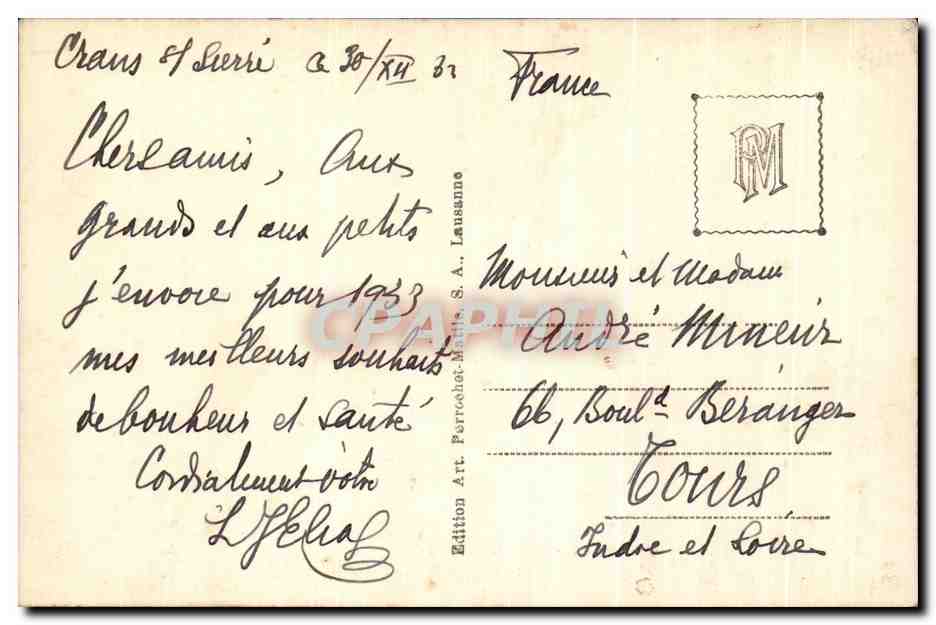 Crans s/ Sierre ce 30/XII 32
Chers amis, Aux
grands et aux petits
j'envoie pour 1933
mes meilleurs souhaits
de bonheur et santé
Cordialement vôtre
Edition Art. Perrochet-Matile, S. A., Lausanne
France
PM
Monsieur et Madame
André Mineur
66, Boul^d Béranger
Tours
Indre et Loire
CPAPHIL